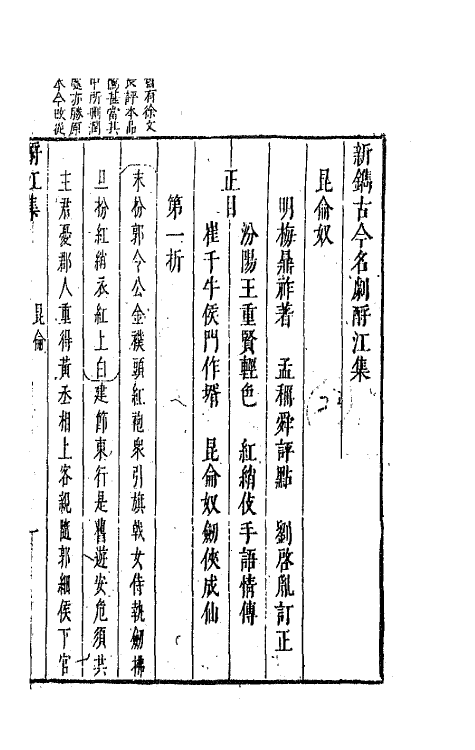 新鐫古今名劇酹江集
昆侖奴
明梅鼎祚著　孟稱舜評點　劉啓胤訂正
正目
汾陽王重賢輕色　紅綃伎手語情傳
崔千牛侯門作壻　昆侖奴劒俠成仙
第一折
末扮郭令公金襆頭紅袍衆引旗戟女侍執劒拂
旦扮紅綃衣紅上白建節東行是舊遊安危須共
主君憂郡人重得黃丞相上客親隨郭細侯下官
舊有徐文
長評本品
隲甚當其
中所刪潤
處亦勝原
本今改從
酹江集
昆侖
一